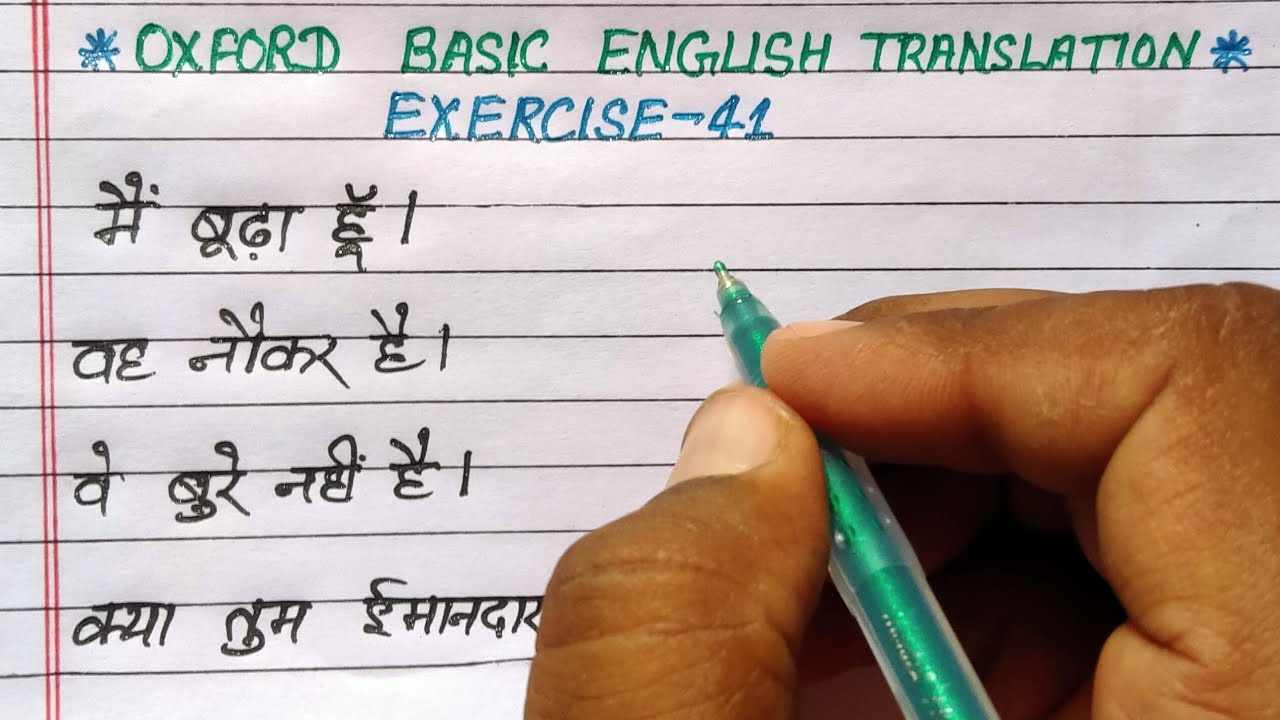 * OXFORD BASIC ENGLISH TRANSLATION *
EXERCISE-41
मैं बूढ़ा हूँ।
वह नौकर है।
वे बुरे नहीं है।
क्या तुम ईमानदार